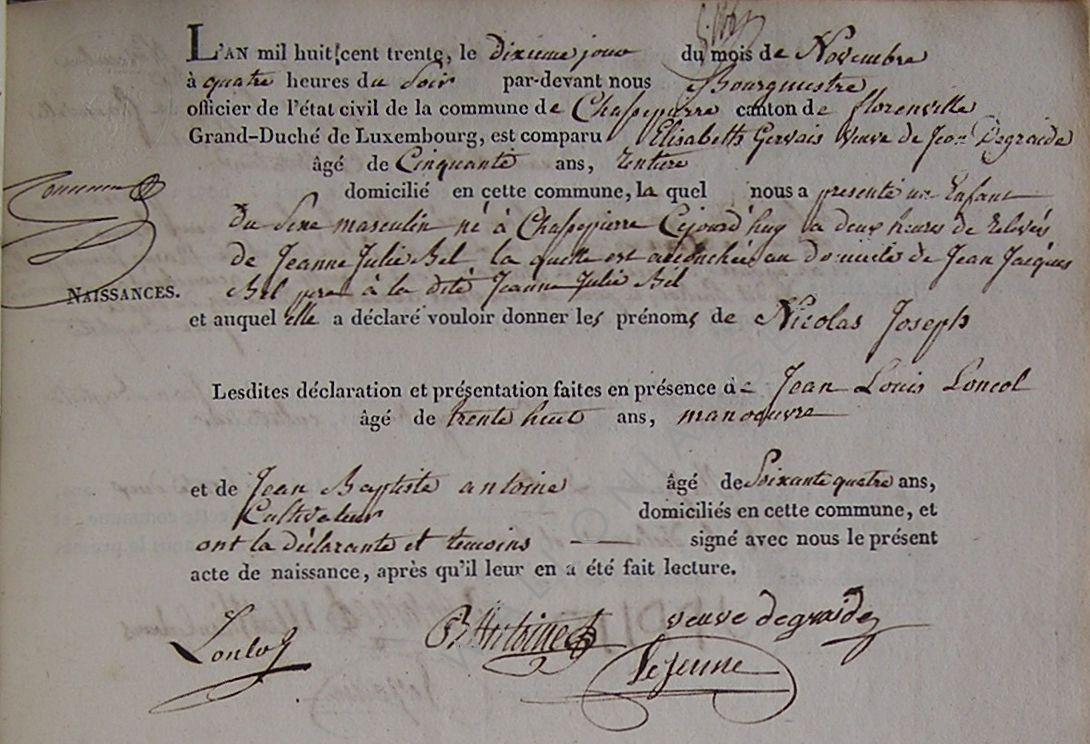 L'AN mil huit cent trente, le dixieme jour du mois de Novembre
à quatre heures du Soir par-devant nous Bourgmestre
officier de l'état civil de la commune de Chassepierre canton de florenville
Grand-Duché de Luxembourg, est comparu Elisabeth Gervais veuve de Jean Degraide
âgé de Cinquante ans, rentiere
domicilié en cette commune, la quel nous a presenté un Enfant
du Sexe masculin né à Chassepierre Cejourd'huy a deux heures de relevés
de Jeanne Julie Bel la quelle est accouchée au domicile de Jean Jacques
Bel pere à la dite Jeanne Julie Bel
NAISSANCES.
et auquel elle a déclaré vouloir donner les prénoms de Nicolas Joseph
Lesdites déclaration et présentation faites en présence de Jean Louis Loncol
âgé de trente huit ans, manoeuvre
et de Jean Baptiste antoine âgé de Soixante quatre ans,
Cultivateur domiciliés en cette commune, et
ont la déclarante et temoins signé avec nous le présent
acte de naissance, après qu'il leur en a été fait lecture.
B Antoine veuve degraide
Lejeune